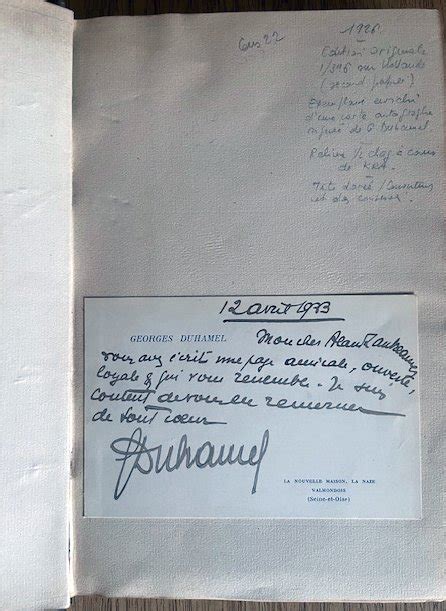 1926
Edition originale
1/396 sur Hollande
(second papier)
Exemplaire enrichi
d'une carte autographe
signée de G Duhamel
Reliure 1/2 chag à coins
de
Tête dorée / Couvertures
et dos conservés
12 avril 1933
GEORGES DUHAMEL
Mon cher
vous avez écrit une page amicale, ouverte,
loyale & qui vous ressemble. Je suis
content de vous en remercier
de tout cœur
GDuhamel
LA NOUVELLE MAISON, LA NAZE
VALMONDOIS
(Seine-et-Oise)